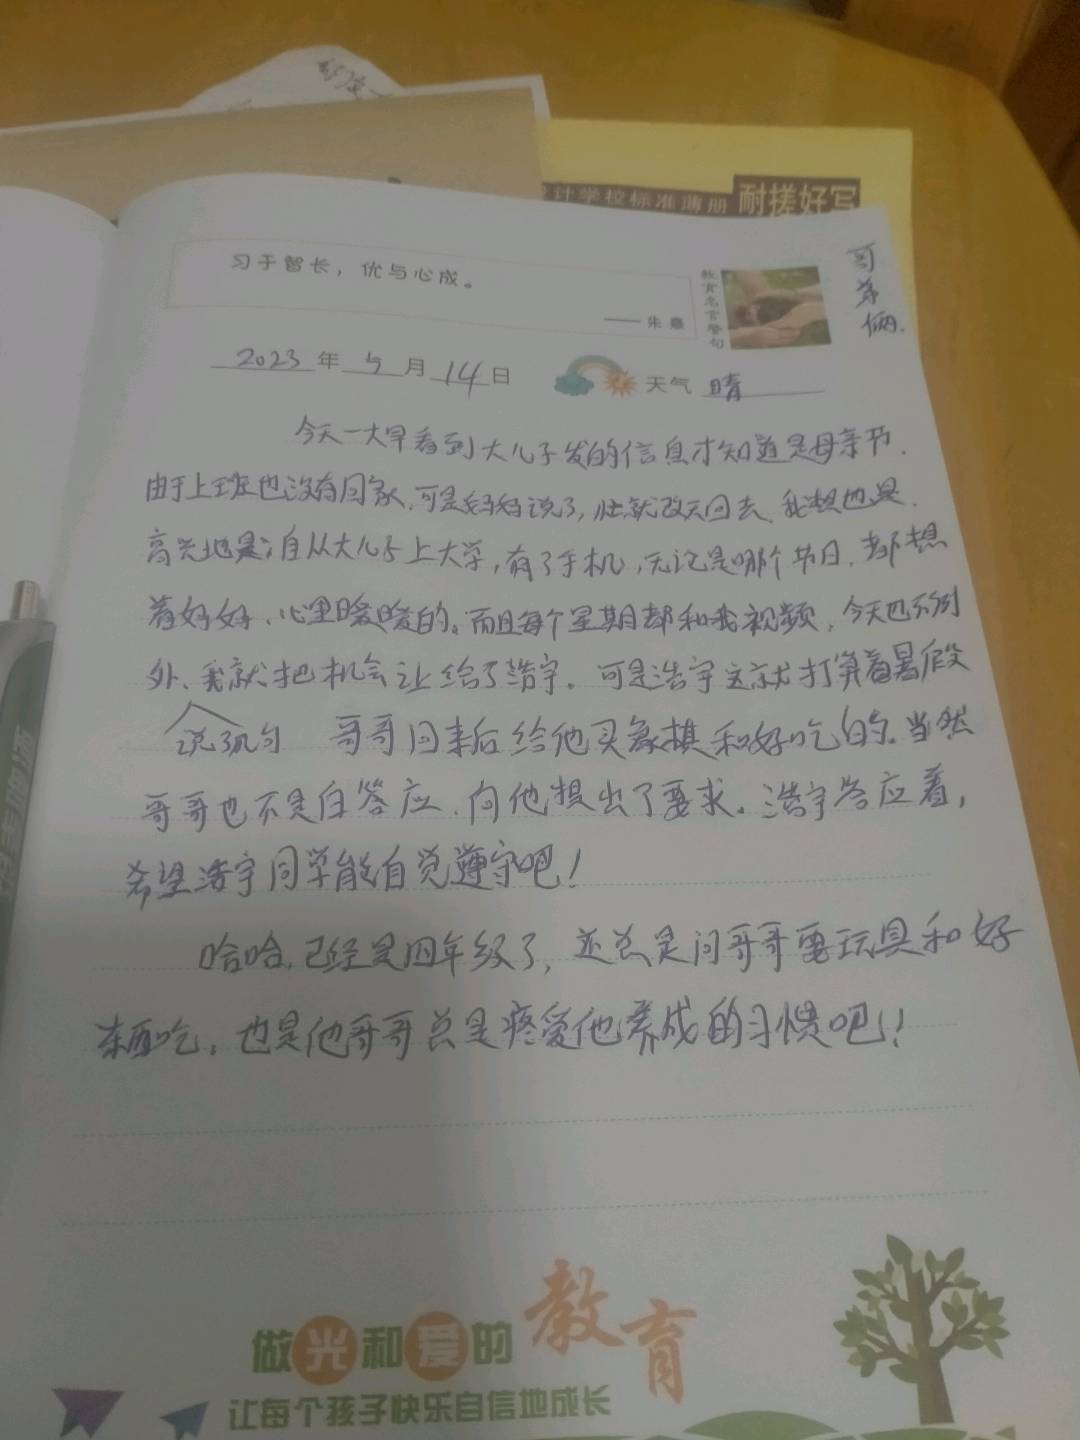 设计学校标准薄册 耐搓好写
习于智长，优与心成。
——朱熹
教育名言警句
哥弟俩.
2023年5月14日 天气 晴
今天一大早看到大儿子发的信息才知道是母亲节.
由于上班也没有回家,可是妈妈说了,忙就改天回去.我想也是.
高兴地是;自从大儿子上大学,有了手机,无论是哪个节日.都想
着妈妈、心里暖暖的。而且每个星期都和我视频,今天也不例
外、我就把机会让给了浩宇。可是浩宇这就打算着暑假
说孤句 哥哥回来后给他买象棋和好吃的.当然
哥哥也不是白答应.向他提出了要求。浩宇答应着,
希望浩宇同学能自觉遵守吧!
哈哈,已经是四年级了,还总是问哥哥要玩具和好
东西吃,也是他哥哥总是疼爱他养成的习惯吧!!
做光和爱的教育
让每个孩子快乐自信地成长